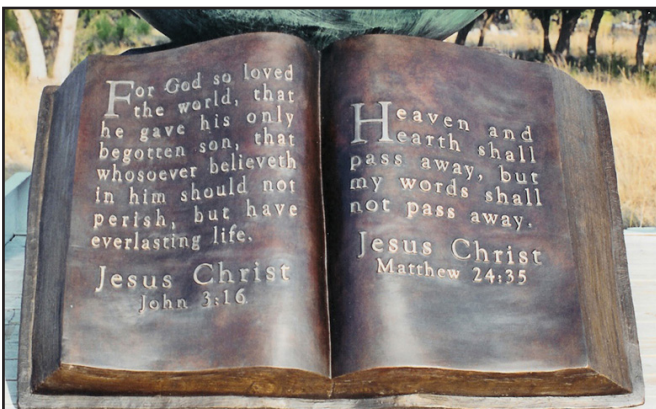 For God so loved
the world, that
he gave his only
begotten son, that
whosoever believeth
in him should not
perish, but have
everlasting life.
Jesus Christ
John 3:16
Heaven and
earth shall
pass away, but
my words shall
not pass away.
Jesus Christ
Matthew 24:35